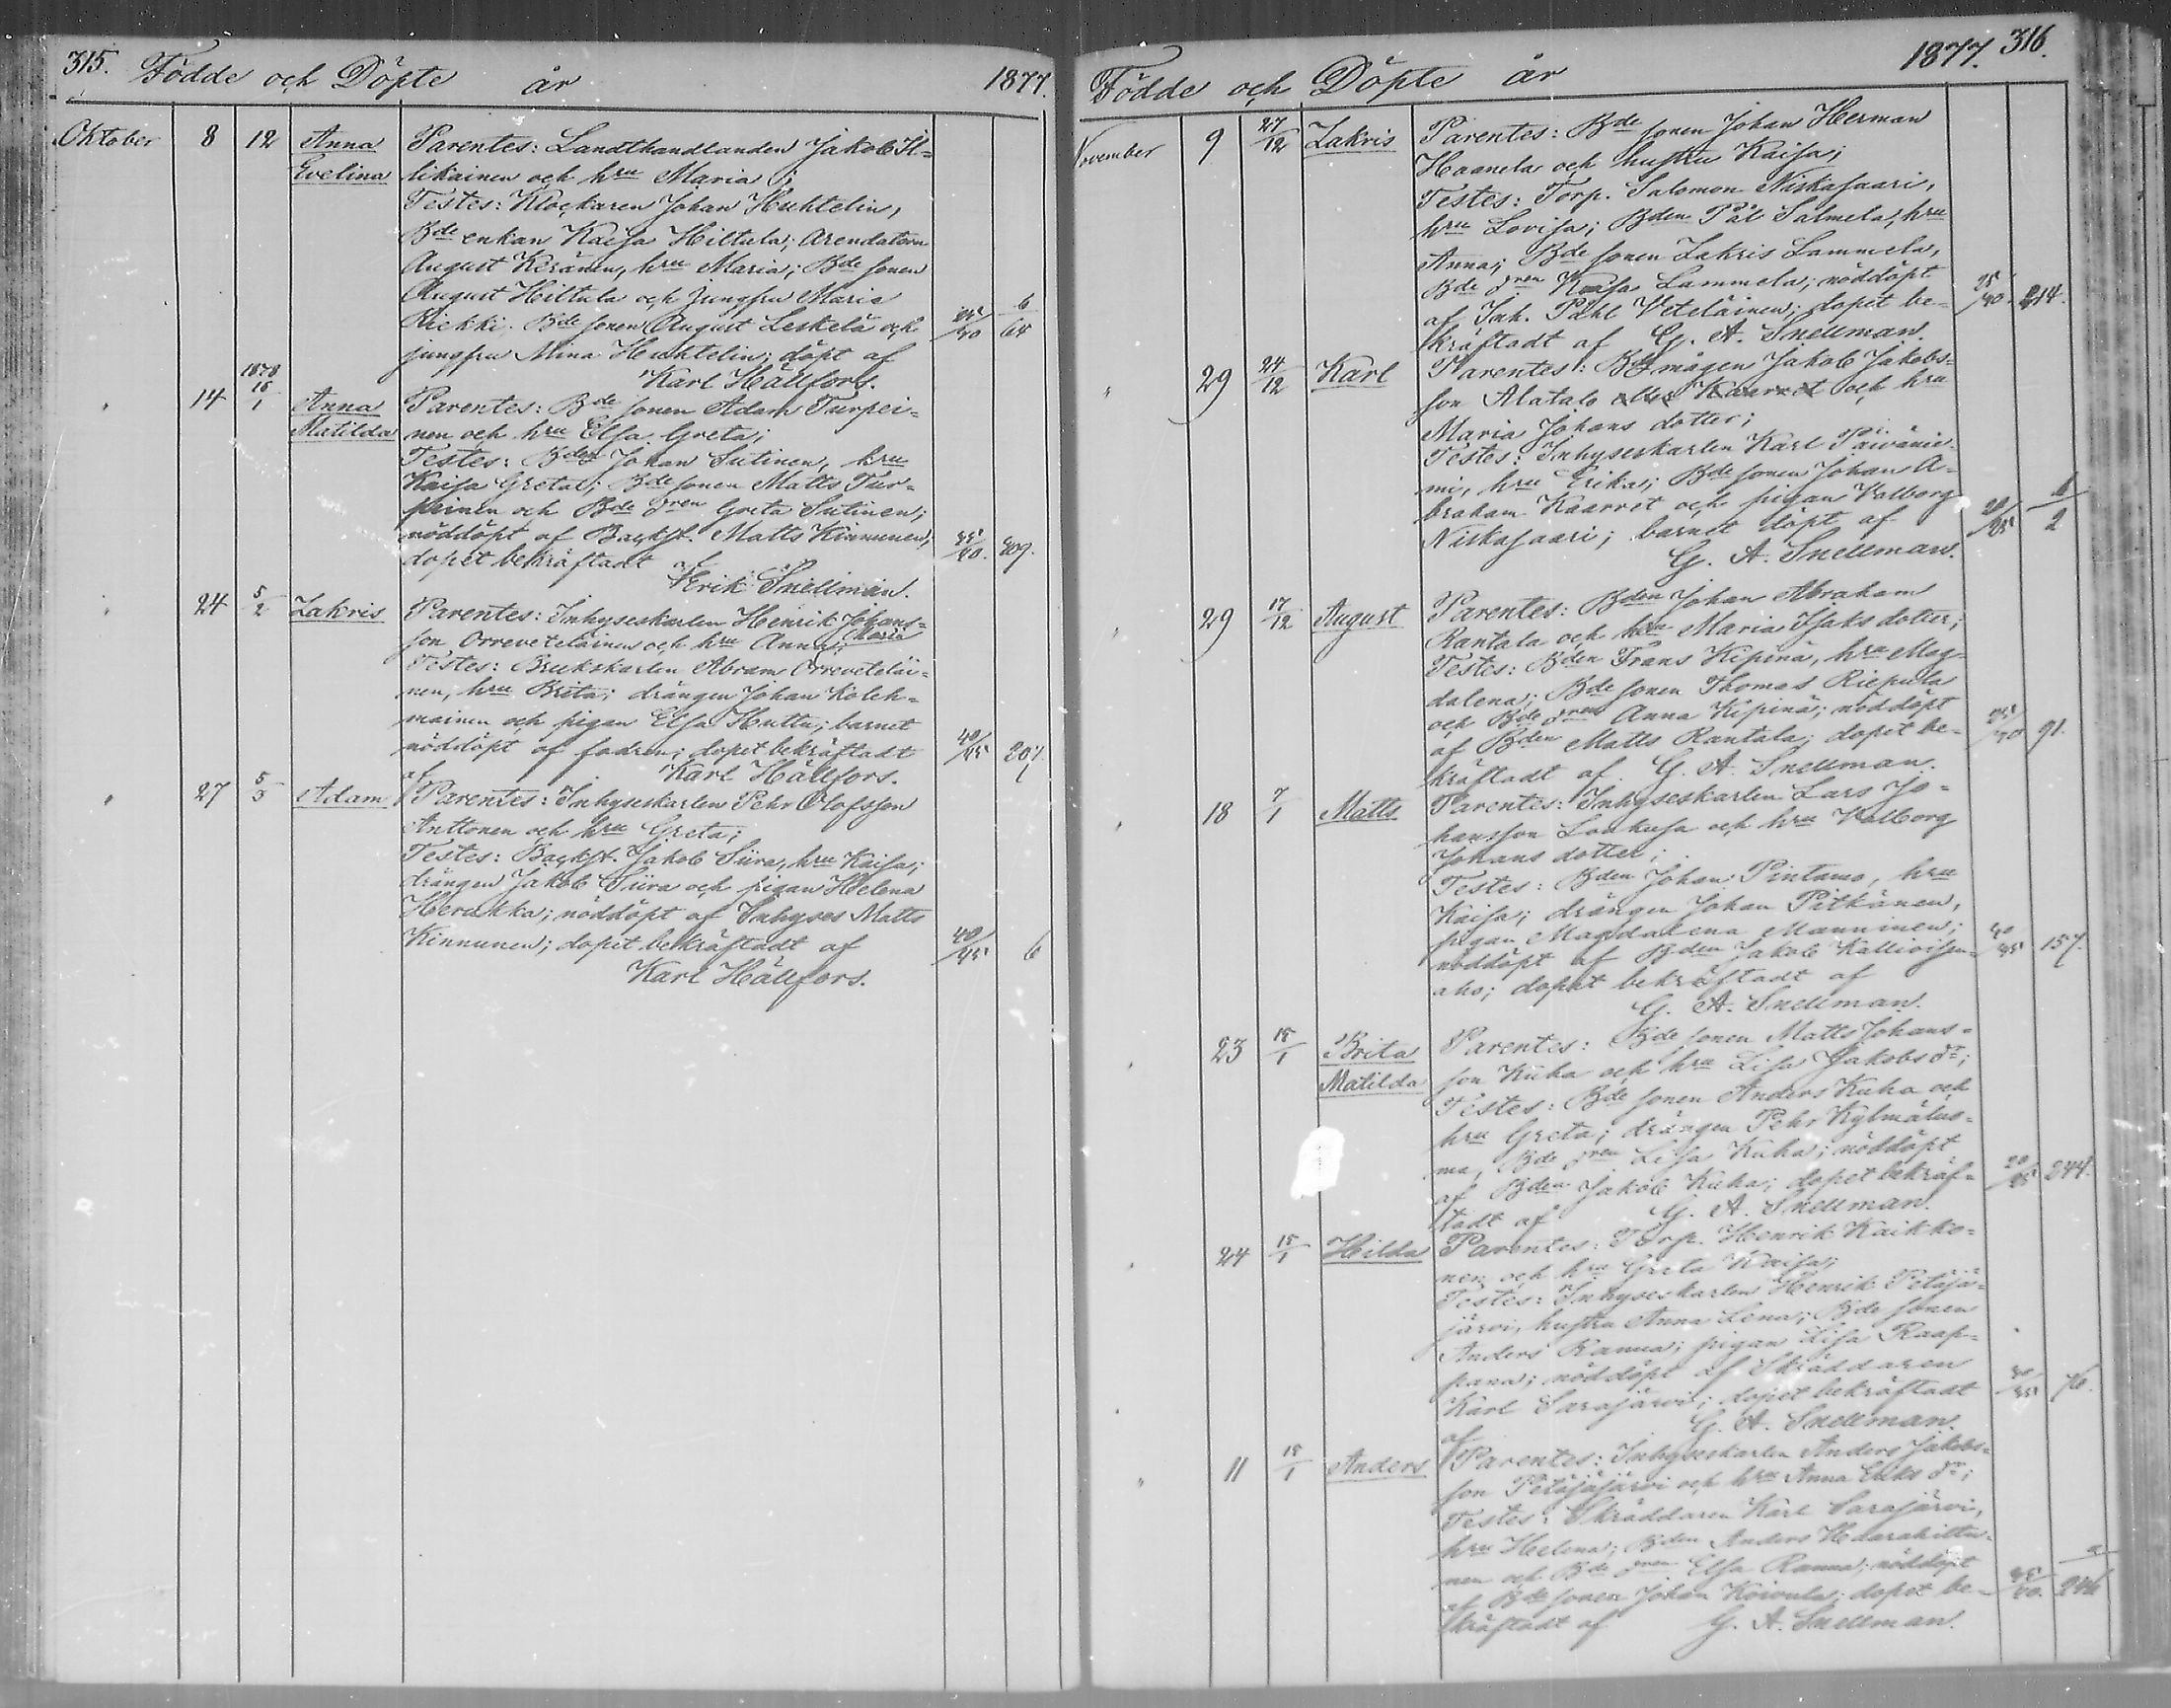 315. Födde och Döpte år 1877.
Oktober 8 12 Anna Evelina
Parentes: Landthandlanden Jakob Il=
likainen och hru Maria;
Testes: Klockaren Johan Huhtelin,
Bde enkan Kaisa Hiltula; Arendatorn
August Keränen, hru Maria; Bde sonen
August Hiltula och jungfru Maria
Riekki. Bde sonen August Leskelä och
jungfru Mina Huhtelin; döpt af
Karl Hällfors.
35/40 6/64
" 14 1878 15/1 Anna Matilda
Parentes: Bde sonen Adam Turpei=
nen och hru Elsa Greta;
Testes: Bden Johan Sutinen, hru
Kaisa Greta; Bde sonen Matts Tur=
peinen och Bde dren Greta Sutinen;
nöddöpt af Backst. Matts Kinnunen;
dopet bekräftadt af
Erik Snellman.
35/40. 209.
" 24 5/2 Zakris
Parentes: Inhyseskarlen Henrik Johans=
son Orreveteläinen och hru Anna Maria;
Testes: Brukskarlen Abram Orrevetelä=
nen, hru Brita; drängen Johan Koleh=
mainen och pigan Elsa Huttu; barnet
nöddöpt af fadren; dopet bekräftadt
af Karl Hällfors.
40/45 207.
" 27 5/3 Adam
Parentes: Inhyseskarlen Pehr Olofsson
Anttonen och hru Greta;
Testes: Backst. Jakob Siira, hru Kaisa;
drängen Jakob Siira och pigan Helena
Herukka; nöddöpt af Inhyses Matts
Kinnunen; dopet bekräftadt af
Karl Hällfors.
40/45 6
Födde och Döpte år 1877. 316.
November 9 27/12 Zakris
Parentes: Bde sonen Johan Herman
Haanela och hustru Kaisa;
Testes: Torp. Salomon Niskasaari,
hru Lovisa; Bden Pål Salmela, hru
Anna; Bde sonen Zakris Lammela,
Bde dren Kaisa Lammela; nöddöpt
af Inh. Påhl Veteläinen; dopet be=
kräftadt af G. A. Snellman.
25/30. 214.
" 29 24/12 Karl
Parentes: Bdemågen Jakob Jakobs=
son Alatalo eller Kaarret och hru
Maria Johans dotter;
Testes: Inhyseskarlen Karl Päivänie=
mi, hru Erika; Bde sonen Johan A=
braham Kaarret och pigan Valborg
Niskasaari; barnet döpt af
G. A. Snellman.
2
" 29 17/12 August
Parentes: Bden Johan Abraham
Rantala och hru Maria Isaks dotter;
Testes: Bden Frans Kipinä, hru Mag=
dalena; Bde sonen Thomas Riepula
och Bde dren Anna Kipinä; nöddöpt
af Bden Matts Rantala; dopet be=
kräftadt af G. A. Snellman.
91.
" 18 7/1 Matts
Parentes: Inhyseskarlen Lars Jo=
hansson Loukusa och hru Valborg
Johans dotter;
Testes: Bden Johan Pintamo, hru
Kaisa; drängen Johan Pitkänen,
pigan Magdalena Manninen;
nöddöpt af Bden Jakob Kallioisen=
aho; dopet bekräftadt af
G. A. Snellman.
157.
" 23 15/1 Brita Matilda
Parentes: Bde sonen Matts Johans=
son Kuha och hru Lisa Jakobs dr;
Testes: Bde sonen Anders Kuha och
hru Greta; drängen Pehr Kylmäluo=
ma, Bde dren Lisa Kuha; nöddöpt
af Bden Jakob Kuha; dopet bekräf=
tadt af G. A. Snellman.
244.
" 24 15/1 Hilda
Parentes: Torp. Henrik Kaikko=
nen och hru Greta Kaisa;
Testes: Inhyseskarlen Henrik Petäjä=
järvi, hustru Anna Lena; Bde sonen
Anders Ranua; pigan Lisa Raap=
pana; nöddöpt af Skräddaren
Karl Sarajärvi; dopet bekräftadt
af G. A. Snellman.
76.
" 11 15/1 Anders
Parentes: Inhyseskarlen Anders Jakobs=
son Petäjäjärvi och hru Anna Eriks dr;
Testes: Skräddaren Karl Sarajärvi,
hru Helena; Bden Anders Haarahiltu=
nen och Bde dren Elsa Ranua; nöddöpt
af Bde sonen Johan Koivula; dopet be=
kräftadt af G. A. Snellman.